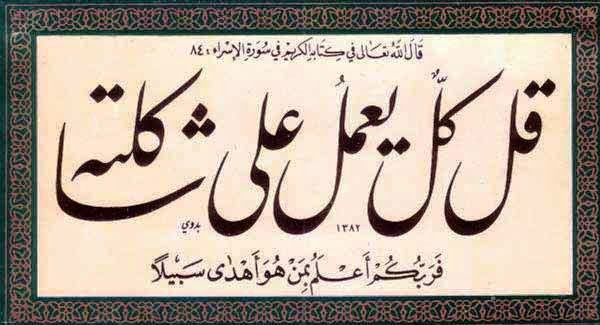 قَالَ اللهُ تَعَالَى فِي كِتَابِهِ الكَرِيْمِ فِي سُورَةِ الإِسْرَاءِ : ٨٤
قل كلٌّ يعملُ على شاكلته
بدوي ١٣٨٢
فَرَبُّكُمْ أَعْلَمُ بِمَنْ هُوَ أَهْدَى سَبِيلًا